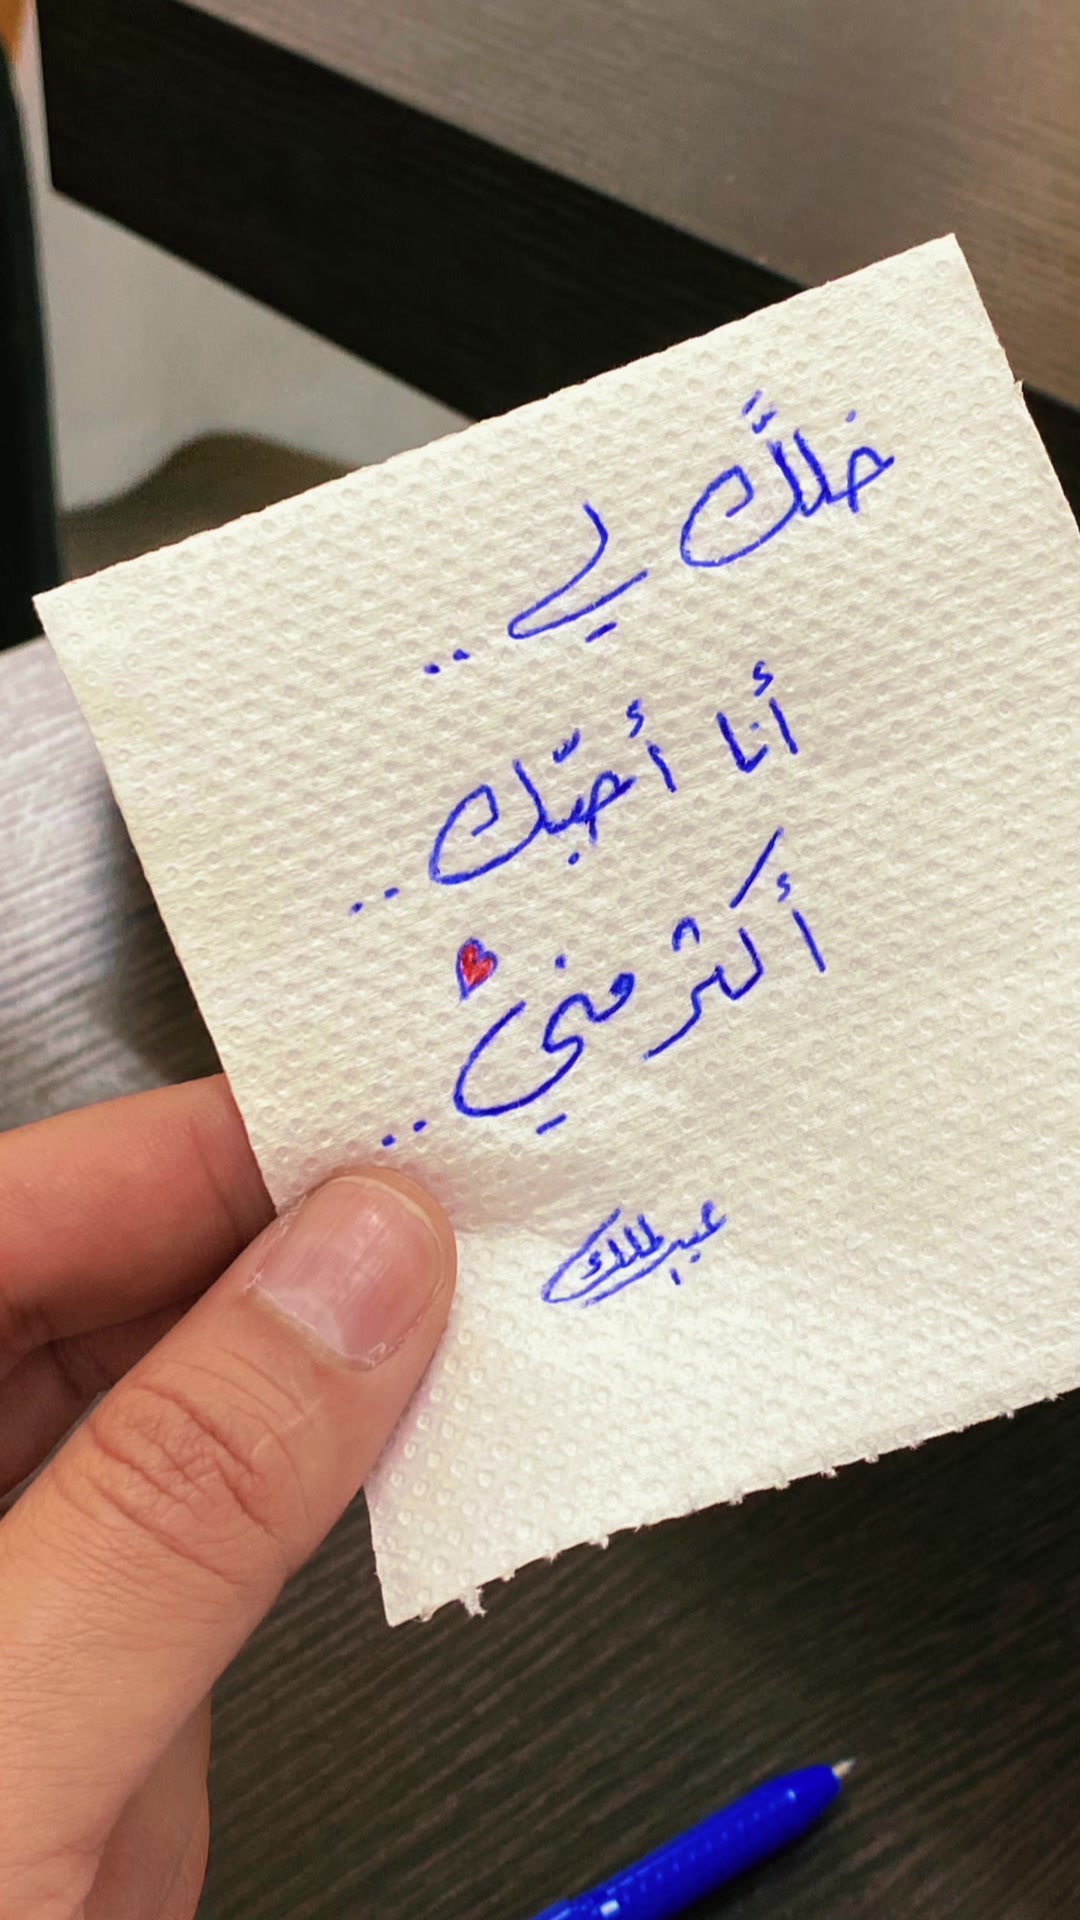 خللَّك لي..
أنا أحبّك..
أكثر منيْ..
عبدالملك